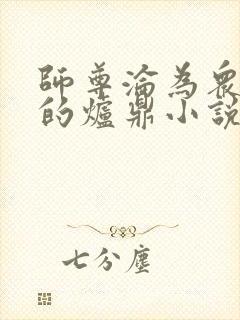 師尊淪為眾
的爐鼎小說
七分塵